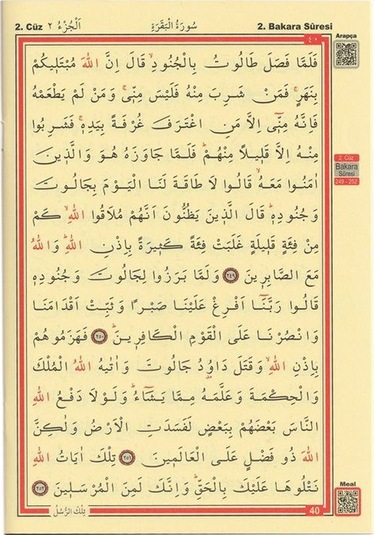 2. Cüz ٢ اَلْجُزْءُ سُورَةُ الْبَقَرَةِ 2. Bakara Sûresi
Arapça
فَلَمَّا فَصَلَ طَالُوتُ بِالْجُنُودِ قَالَ اِنَّ اللّٰهَ مُبْتَلِيكُمْ
بِنَهَرٍ فَمَنْ شَرِبَ مِنْهُ فَلَيْسَ مِنّٖى وَمَنْ لَمْ يَطْعَمْهُ
فَاِنَّهُ مِنّٖٓى اِلَّا مَنِ اغْتَرَفَ غُرْفَةً بِيَدِهٖ فَشَرِبُوا
مِنْهُ اِلَّا قَلٖيلاً مِنْهُمْ فَلَمَّا جَاوَزَهُ هُوَ وَالَّذٖينَ
اٰمَنُوا مَعَهُ قَالُوا لَا طَاقَةَ لَنَا الْيَوْمَ بِجَالُوتَ
وَجُنُودِهٖ قَالَ الَّذٖينَ يَظُنُّونَ اَنَّهُمْ مُلَاقُوا اللّٰهِ كَمْ
مِنْ فِئَةٍ قَلٖيلَةٍ غَلَبَتْ فِئَةً كَثٖيرَةً بِاِذْنِ اللّٰهِ وَاللّٰهُ
مَعَ الصَّابِرٖينَ ﴿٢٤٩﴾ وَلَمَّا بَرَزُوا لِجَالُوتَ وَجُنُودِهٖ
قَالُوا رَبَّنَٓا اَفْرِغْ عَلَيْنَا صَبْراً وَثَبِّتْ اَقْدَامَنَا
وَانْصُرْنَا عَلَى الْقَوْمِ الْكَافِرٖينَ ﴿٢٥٠﴾ فَهَزَمُوهُمْ
بِاِذْنِ اللّٰهِ وَقَتَلَ دَاوُدُ جَالُوتَ وَاٰتٰيهُ اللّٰهُ الْمُلْكَ
وَالْحِكْمَةَ وَعَلَّمَهُ مِمَّا يَشَٓاءُ وَلَوْلَا دَفْعُ اللّٰهِ
النَّاسَ بَعْضَهُمْ بِبَعْضٍ لَفَسَدَتِ الْاَرْضُ وَلٰكِنَّ
اللّٰهَ ذُو فَضْلٍ عَلَى الْعَالَمٖينَ ﴿٢٥١﴾ تِلْكَ اٰيَاتُ اللّٰهِ
نَتْلُوهَا عَلَيْكَ بِالْحَقِّ وَاِنَّكَ لَمِنَ الْمُرْسَلٖينَ ﴿٢٥٢﴾
2. Cüz
Bakara
Sûresi
249 - 252
Meal
تِلْكَ الرُّسُلُ 40